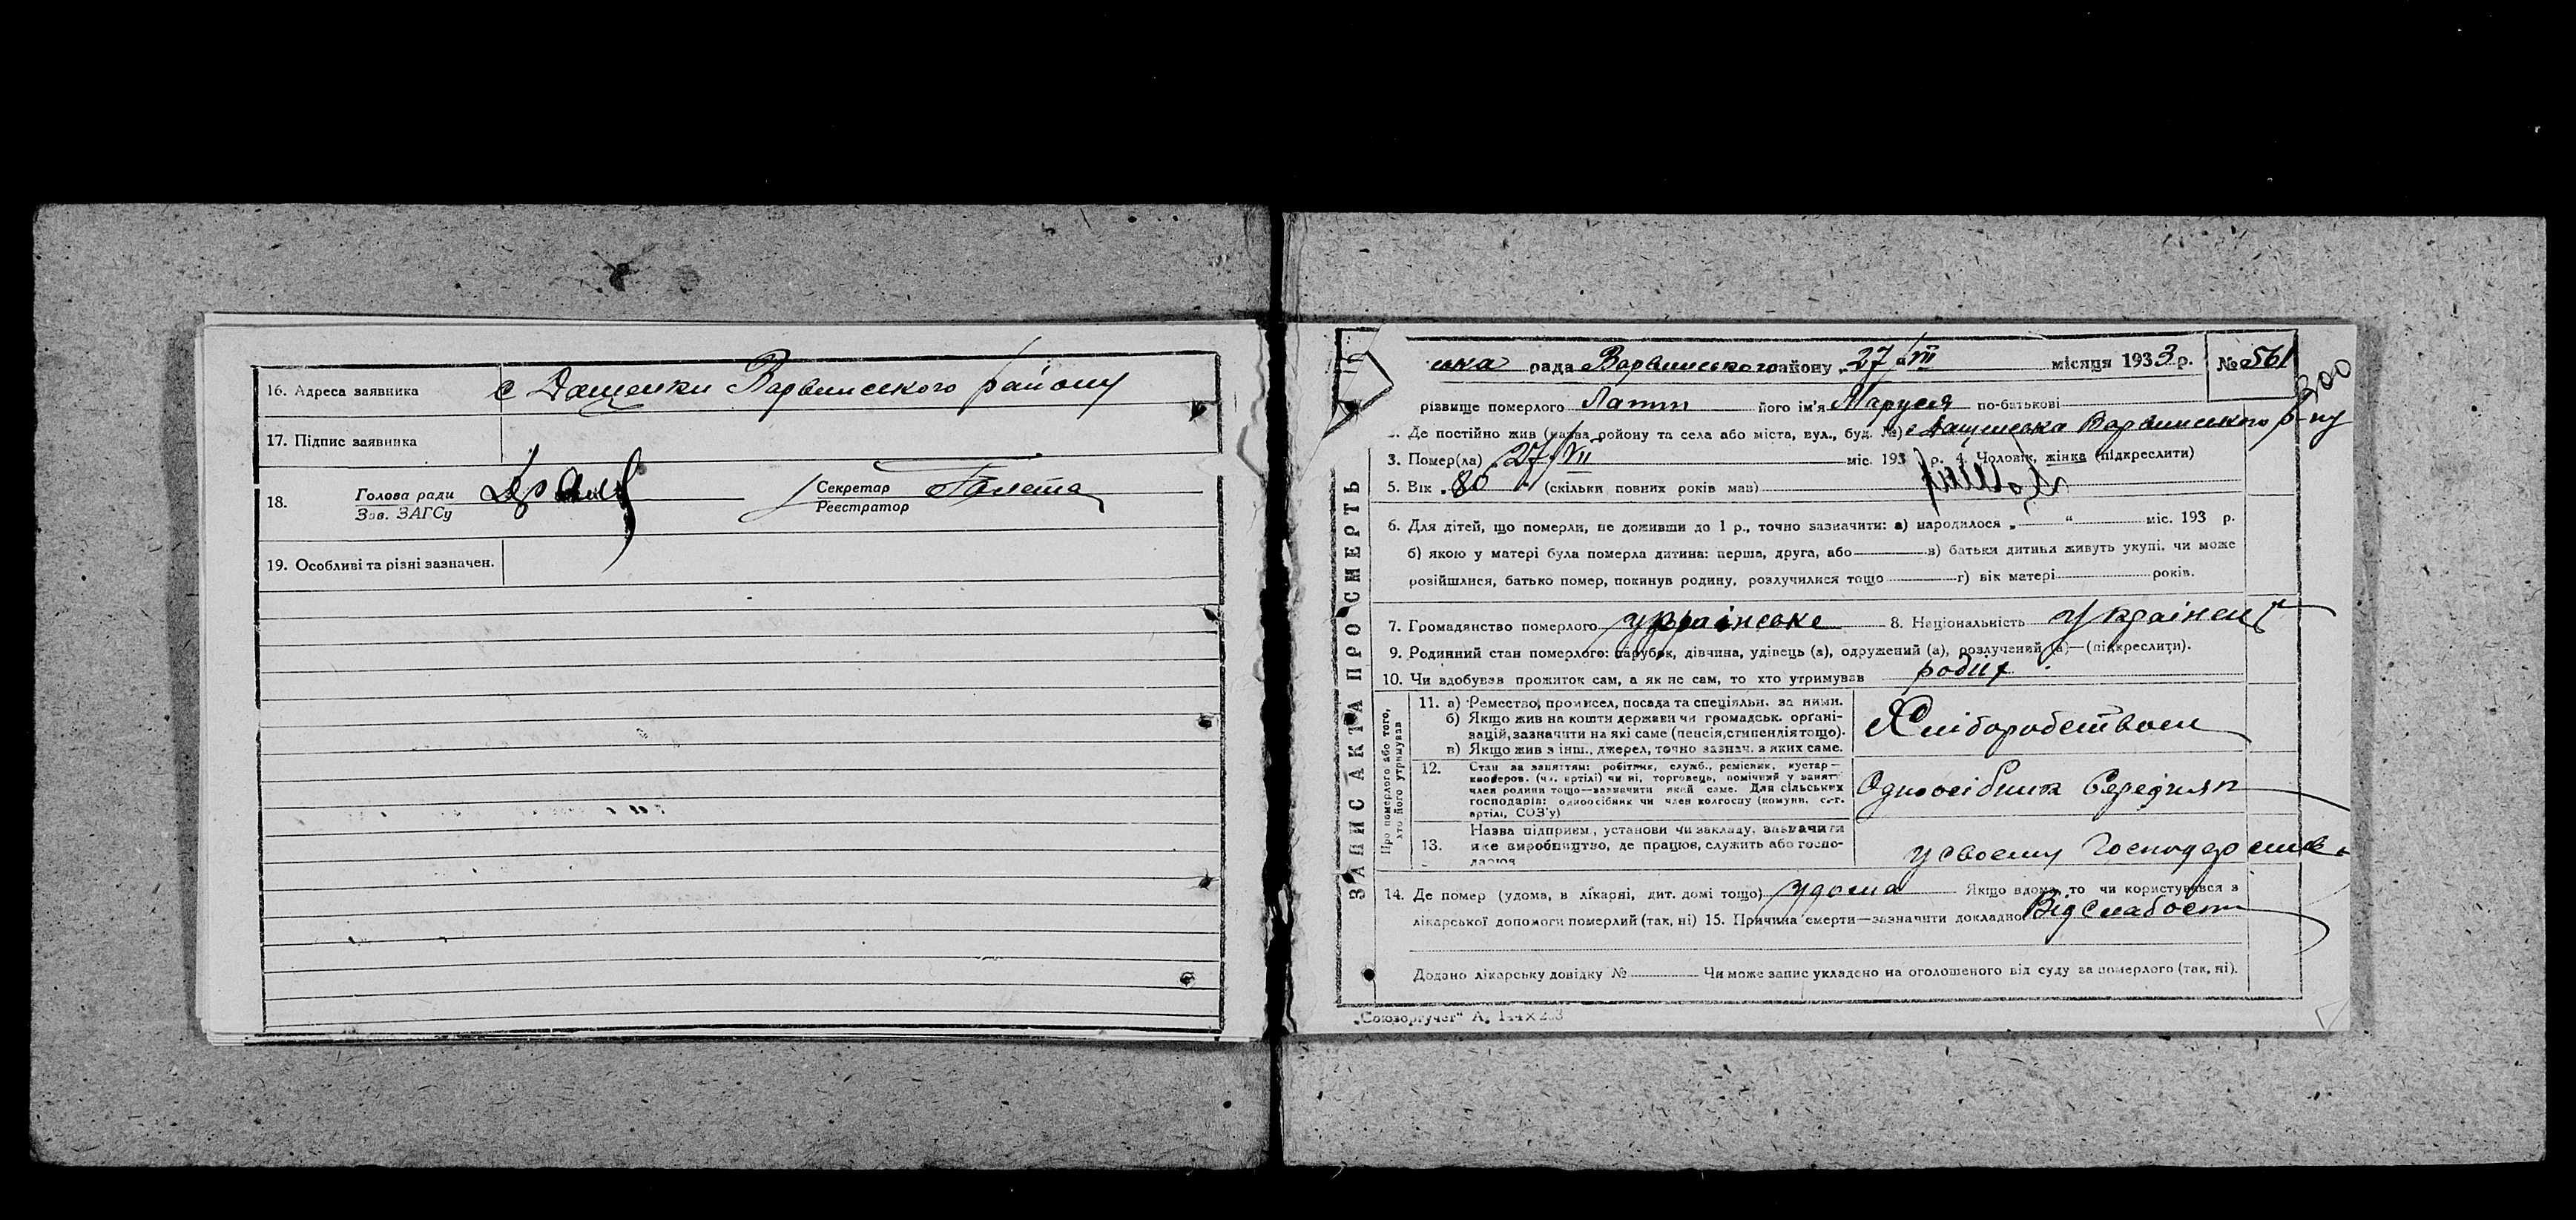 16. Адреса заявника с Дащенки Варвинського району
17. Підпис заявника
18. Голова ради
Зав. ЗАГСу
Секретар Галета
Реєстратор
19. Особливі та різні зазначен.
ЗАПИС АКТА ПРО СМЕРТЬ
ська рада Варвинського району „27/VII місяця 1933 р. № 561
300
різвище померлого Лапт його ім'я Маруся по-батькові
Де постійно жив (назва району та села або міста, вул., буд. №) с Дащенка Варвинського р-ну
3. Помер(ла) „27/VII міс. 193 р. 4. Чоловік, жінка (підкреслити)
5. Вік „80 “ (скільки повних років мав)
6. Для дітей, що померли, не доживши до 1 р., точно зазначити: а) народилося „ “ міс. 193 р.
б) якою у матері була померла дитина: перша, друга, або в) батьки дитини живуть укупі, чи може
розійшлися, батько помер, покинув родину, розлучилися тощо г) вік матері років.
7. Громадянство померлого українське 8. Національність Українец
9. Родинний стан померлого: парубок, дівчина, удівець (а), одружений (а), розлучений (а)—(підкреслити).
10. Чи здобував прожиток сам, а як не сам, то хто утримував
Про померлого або того, хто його утримував
11. а) Ремество, промисел, посада та спеціяльн. за ними.
б) Якщо жив на кошти держави чи громадськ. органі-
зацій, зазначити на які саме (пенсія, стипендія тощо).
в) Якщо жив з інш. джерел, точно зазнач. з яких саме.
Хліборобством
12. Стан за заняттям: робітник, служб., ремісник, кустар—
кооперов. (чл. артілі) чи ні, торговець, помічний у занятті
член родини тощо—зазначити який саме. Для сільських
господарів: одноосібник чи член колгоспу (комуни, с.-г.
артілі, СОЗ'у)
Одноосібник Середняк
13. Назва підприєм., установи чи закладу, зазначити
яке виробництво, де працює, служить або госпо-
дарює
у своему Господарстві
14. Де помер (удома, в лікарні, дит. домі тощо) удома Якщо вдома, то чи користувався з
лікарської допомоги померлий (так, ні) 15. Причина смерти—зазначити докладно Від Слабости
Додано лікарську довідку № Чи може запис укладено на оголошеного від суду за померлого (так, ні).
„Союзоргучет“